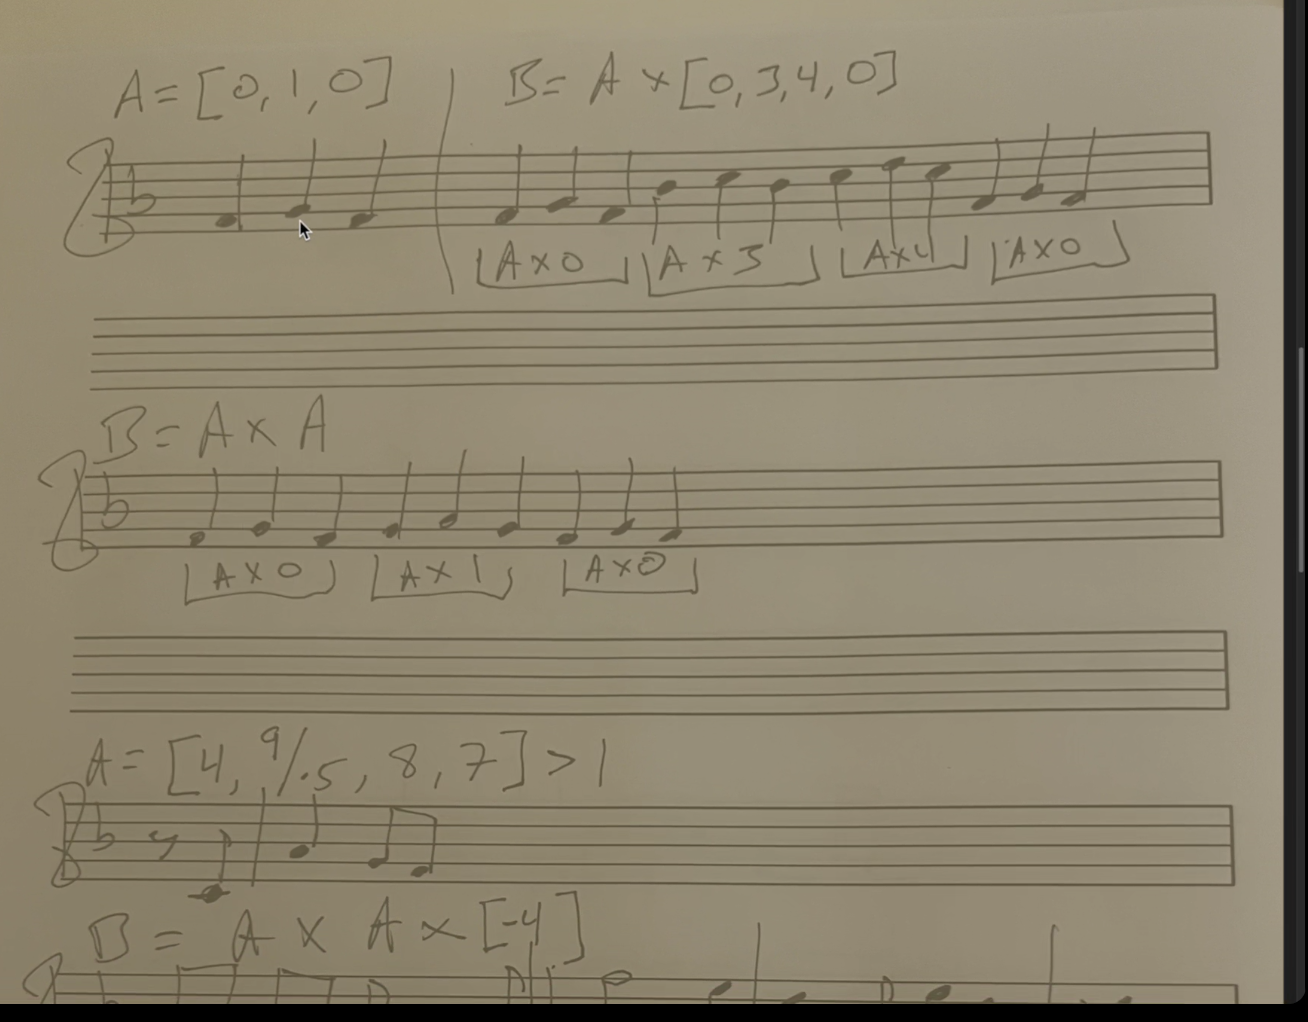 A = [0, 1, 0] B = A × [0, 3, 4, 0]
A × 0 A × 3 A × 4 A × 0
B = A × A
A × 0 A × 1 A × 0
A = [4, 9/.5, 8, 7] > 1
B = A × A × [-4]